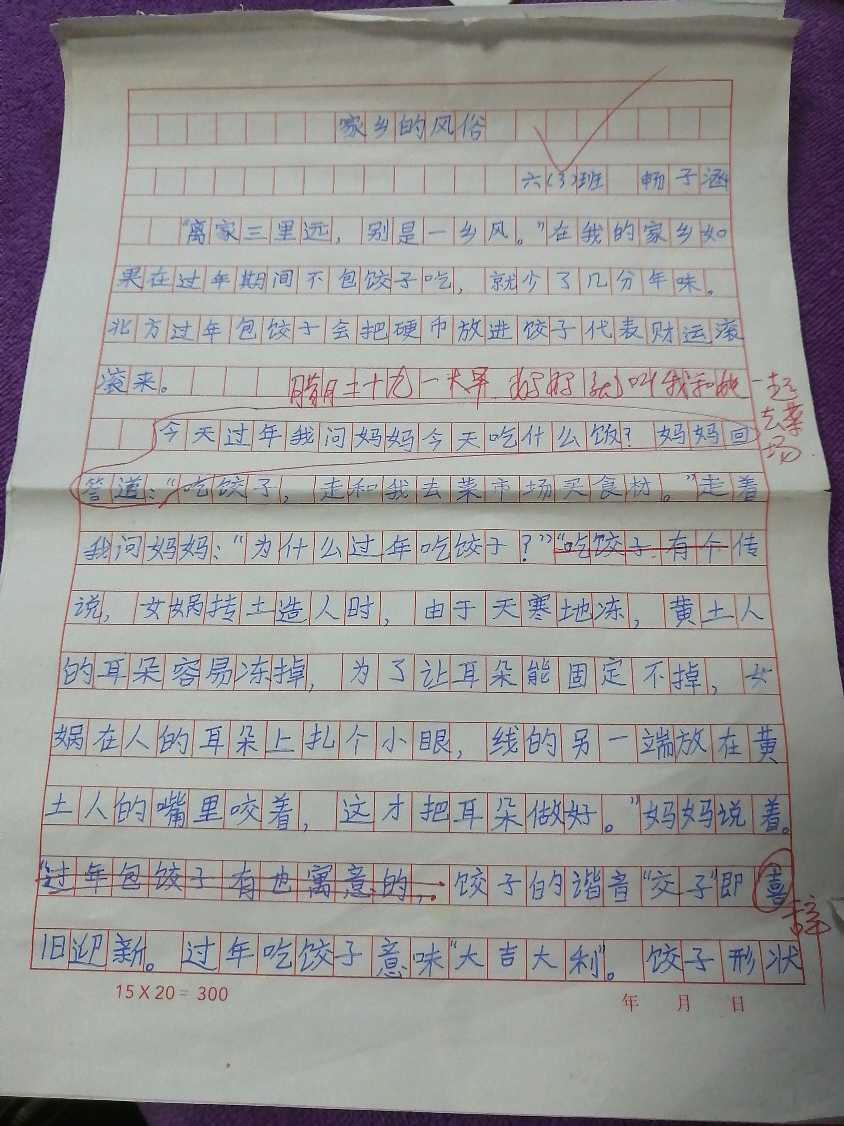 家乡的风俗
六(3)班 畅子涵
“离家三里远，别是一乡风。”在我的家乡如
果在过年期间不包饺子吃，就少了几分年味。
北方过年包饺子会把硬币放进饺子代表财运滚
滚来。
腊月二十九一大早 妈妈就叫我和她一起
去菜
场
今天过年我问妈妈今天吃什么饭？妈妈回
答道：“吃饺子，走和我去菜市场买食材。”走着
我问妈妈：“为什么过年吃饺子？”“吃饺子有个传
说，女娲抟土造人时，由于天寒地冻，黄土人
的耳朵容易冻掉，为了让耳朵能固定不掉，女
娲在人的耳朵上扎个小眼，线的另一端放在黄
土人的嘴里咬着，这才把耳朵做好。”妈妈说着。
“过年包饺子有也寓意的，饺子的谐音“交子”即喜
辞
旧迎新。过年吃饺子意味“大吉大利”。饺子形状
15×20=300
年 月 日